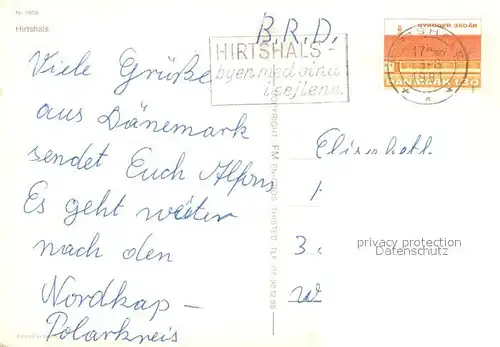 Nr. 7604
Hirtshals
B.R.D.
HIRTSHALS -
byen med vind
i sejlene.
NYBODER 350 ÅR
DANMARK 130
Viele Grüße
aus Dänemark
sendet Euch Alfons
Es geht weiter
nach den
Nordkap -
Polarkreis
COPYRIGHT FM ENERET
Elisabeth
3.
W
privacy protection
Datenschutz